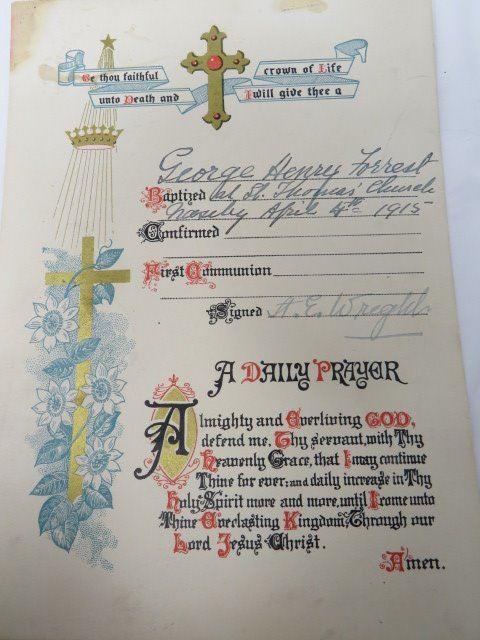 Be thou faithful
unto Death and
crown of Life
I will give thee a
George Henry Forrest
Baptized at St. Thomas' Church
Naseby April 4th 1915
Confirmed
First Communion
Signed A. E. Wright
A DAILY PRAYER
Almighty and Everliving GOD,
defend me, Thy servant, with Thy
Heavenly Grace, that I may continue
Thine for ever: and daily increase in Thy
Holy Spirit more and more, until I come unto
Thine Everlasting Kingdom, Through our
Lord Jesus Christ.
Amen.